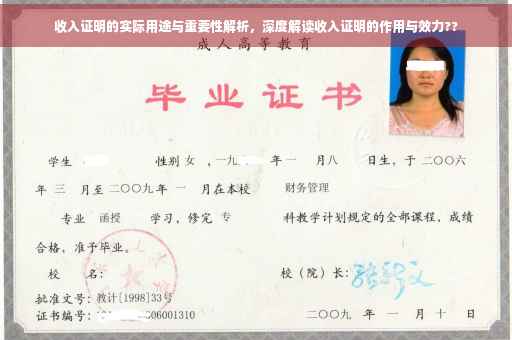 收入证明的实际用途与重要性解析，深度解读收入证明的作用与效力??
成人高等教育
毕业证书
学生 性别 女 ，一九 年 一 月 八 日生，于 二〇〇六
年 三 月至 二〇〇九 年 一 月在本校 财务管理
专业 函授 学习，修完 专 科教学计划规定的全部课程，成绩
合格，准予毕业。
校 名： 校（院）长：
批准文号：教计[1998]33号
证书编号： 06001310 二〇〇九 年 一 月 十 日